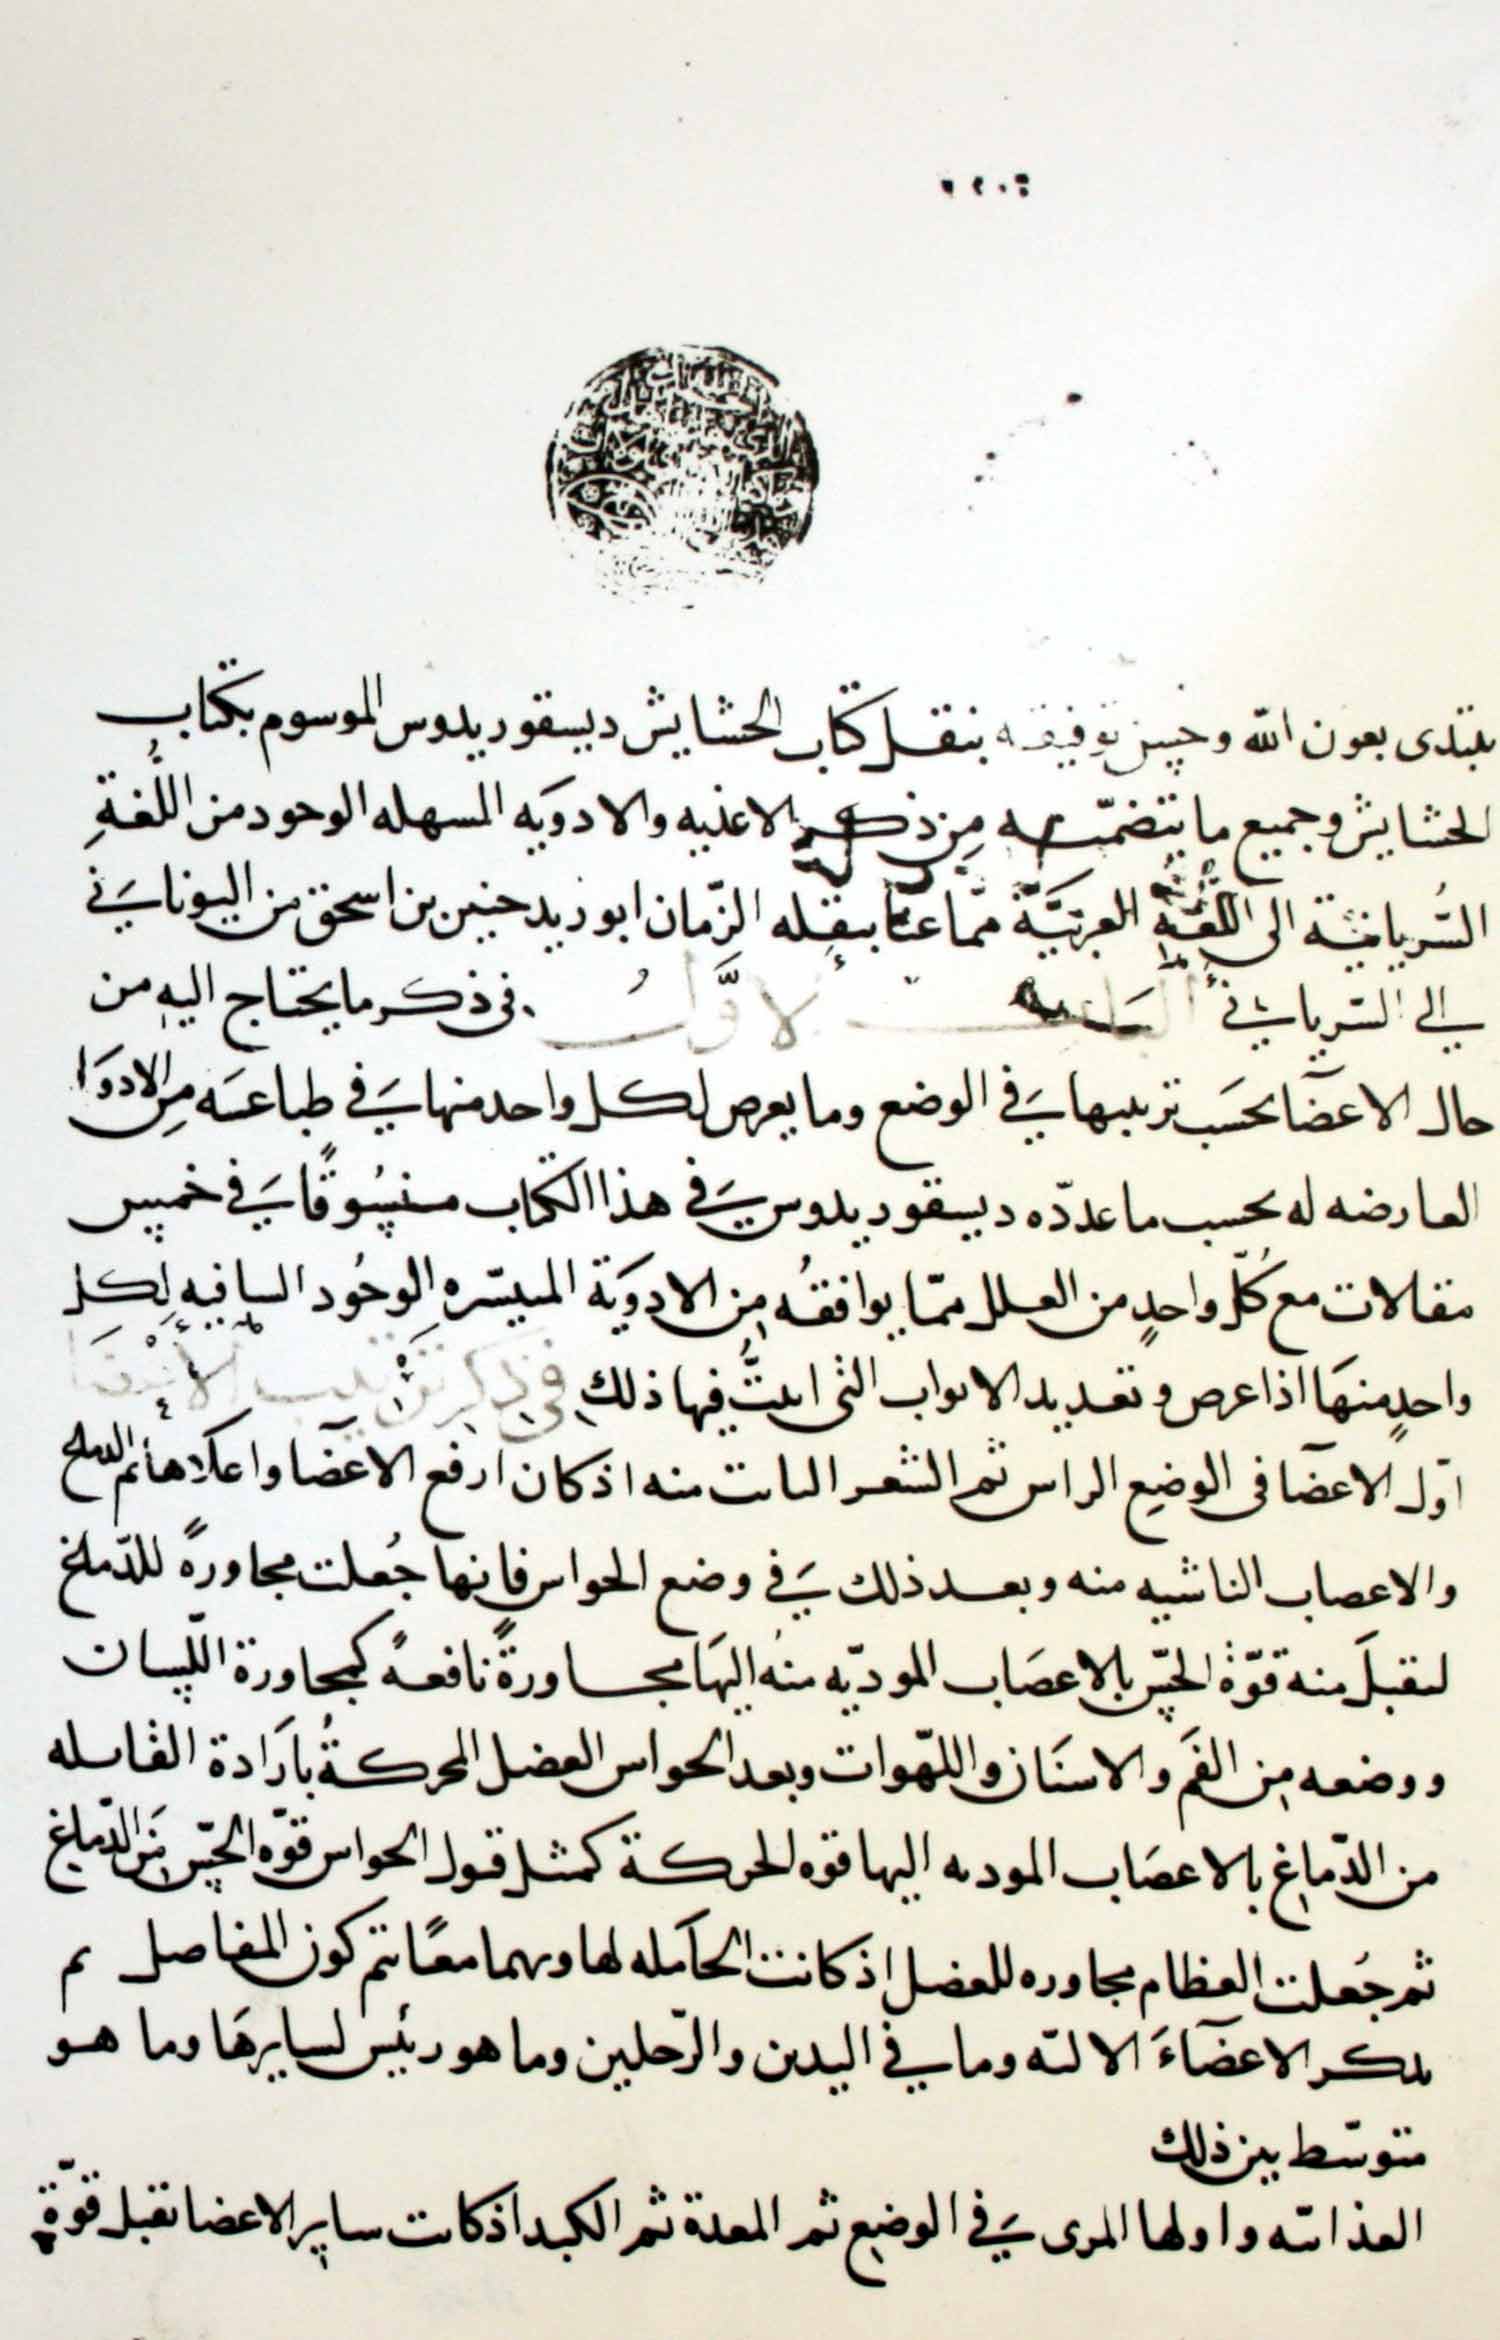 نبتدى بعون الله وحسن توفيقه بنقل كتاب الحشايش ديسقوريدوس الموسوم بكتاب
الحشايش وجميع ما يتضمنه من ذكر الاغذيه والادويه المسهله الوحود من اللغة
السريانية الى اللغة العربية مما عنا بنقله الزمان ابو زيد حنين بن اسحق من اليوناني
الى السرياني الاول في ذكر ما يحتاج اليه من
حال الاعضا بحسب ترتيبها في الوضع وما يعرض لكل واحد منها في طباعه من الادوا
العارضه له بحسب ما عدده ديسقوريدوس في هذا الكتاب منسوقا في خمس
مقالات مع كل واحد من العلل مما يوافقه من الادوية الميسره الوحود الشافيه لكل
واحد منها اذا عرض وتعديد الابواب التى اثبت فيها ذلك في ذكر ترتيب الاعضا
اول الاعضا فى الوضع الراس ثم الشعر النابت منه اذ كان ارفع الاعضا واعلاها ثم الدماغ
والاعصاب الناشيه منه وبعد ذلك في وضع الحواس فانها جعلت مجاورة للدماغ
لتقبل منه قوة الحس بالاعصاب الموديه منه اليها مجاورة نافعة كمجاورة اللسان
ووضعه من الفم والاسنان واللهوات وبعد الحواس العضل المحركة بارادة القابله
من الدماغ بالاعصاب الموديه اليها قوه الحركة كمثل قبول الحواس قوه الحس من الدماغ
ثم جعلت العظام مجاوره للعضل اذ كانت الحامله لها وبهما معا تتم كون المفاصل ثم
نذكر الاعضاء الالية وما في اليدين والرجلين وما هو رئيس لسايرها وما هو
متوسط بين ذلك
الغذائيه واولها المرى في الوضع ثم المعدة ثم الكبد اذ كانت ساير الاعضا تقبل قوة